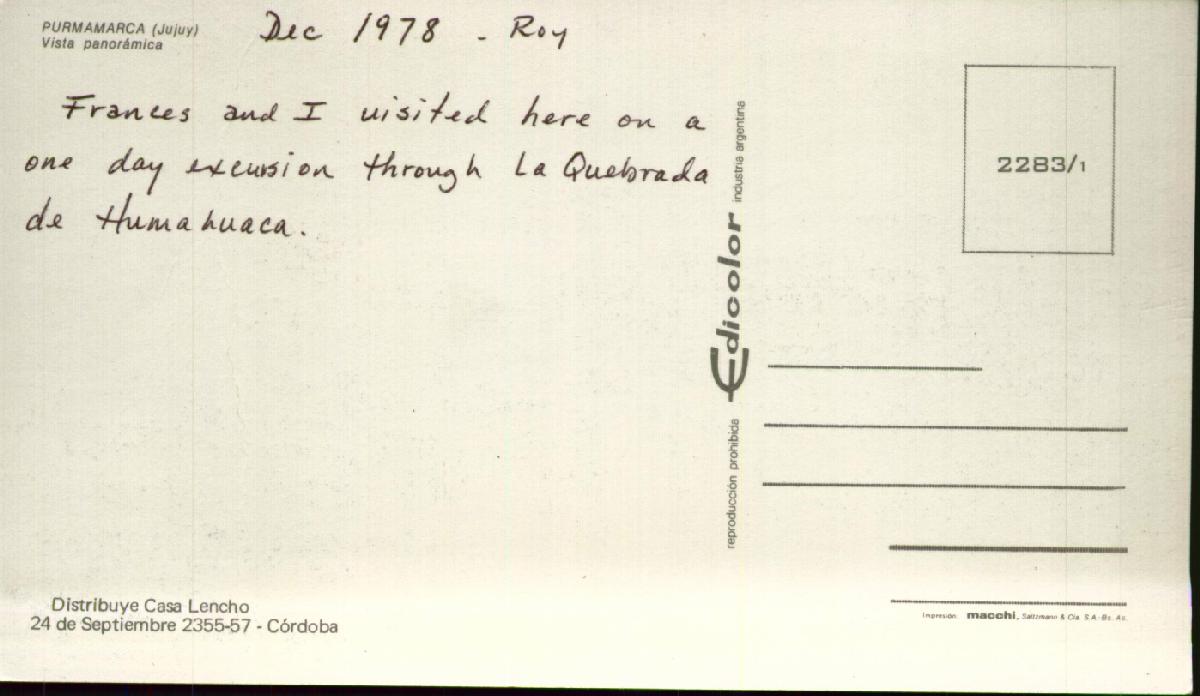 PURMAMARCA (Jujuy)
Vista panorámica
Dec 1978 - Roy
Frances and I visited here on a
one day excursion through La Quebrada
de Humahuaca.
industria argentina
Edicolor
reproducción prohibida
2283/1
Distribuye Casa Lencho
24 de Septiembre 2355-57 - Córdoba
Impresión: macchi, Saltzmann & Cia. S.A.-Bs. As.